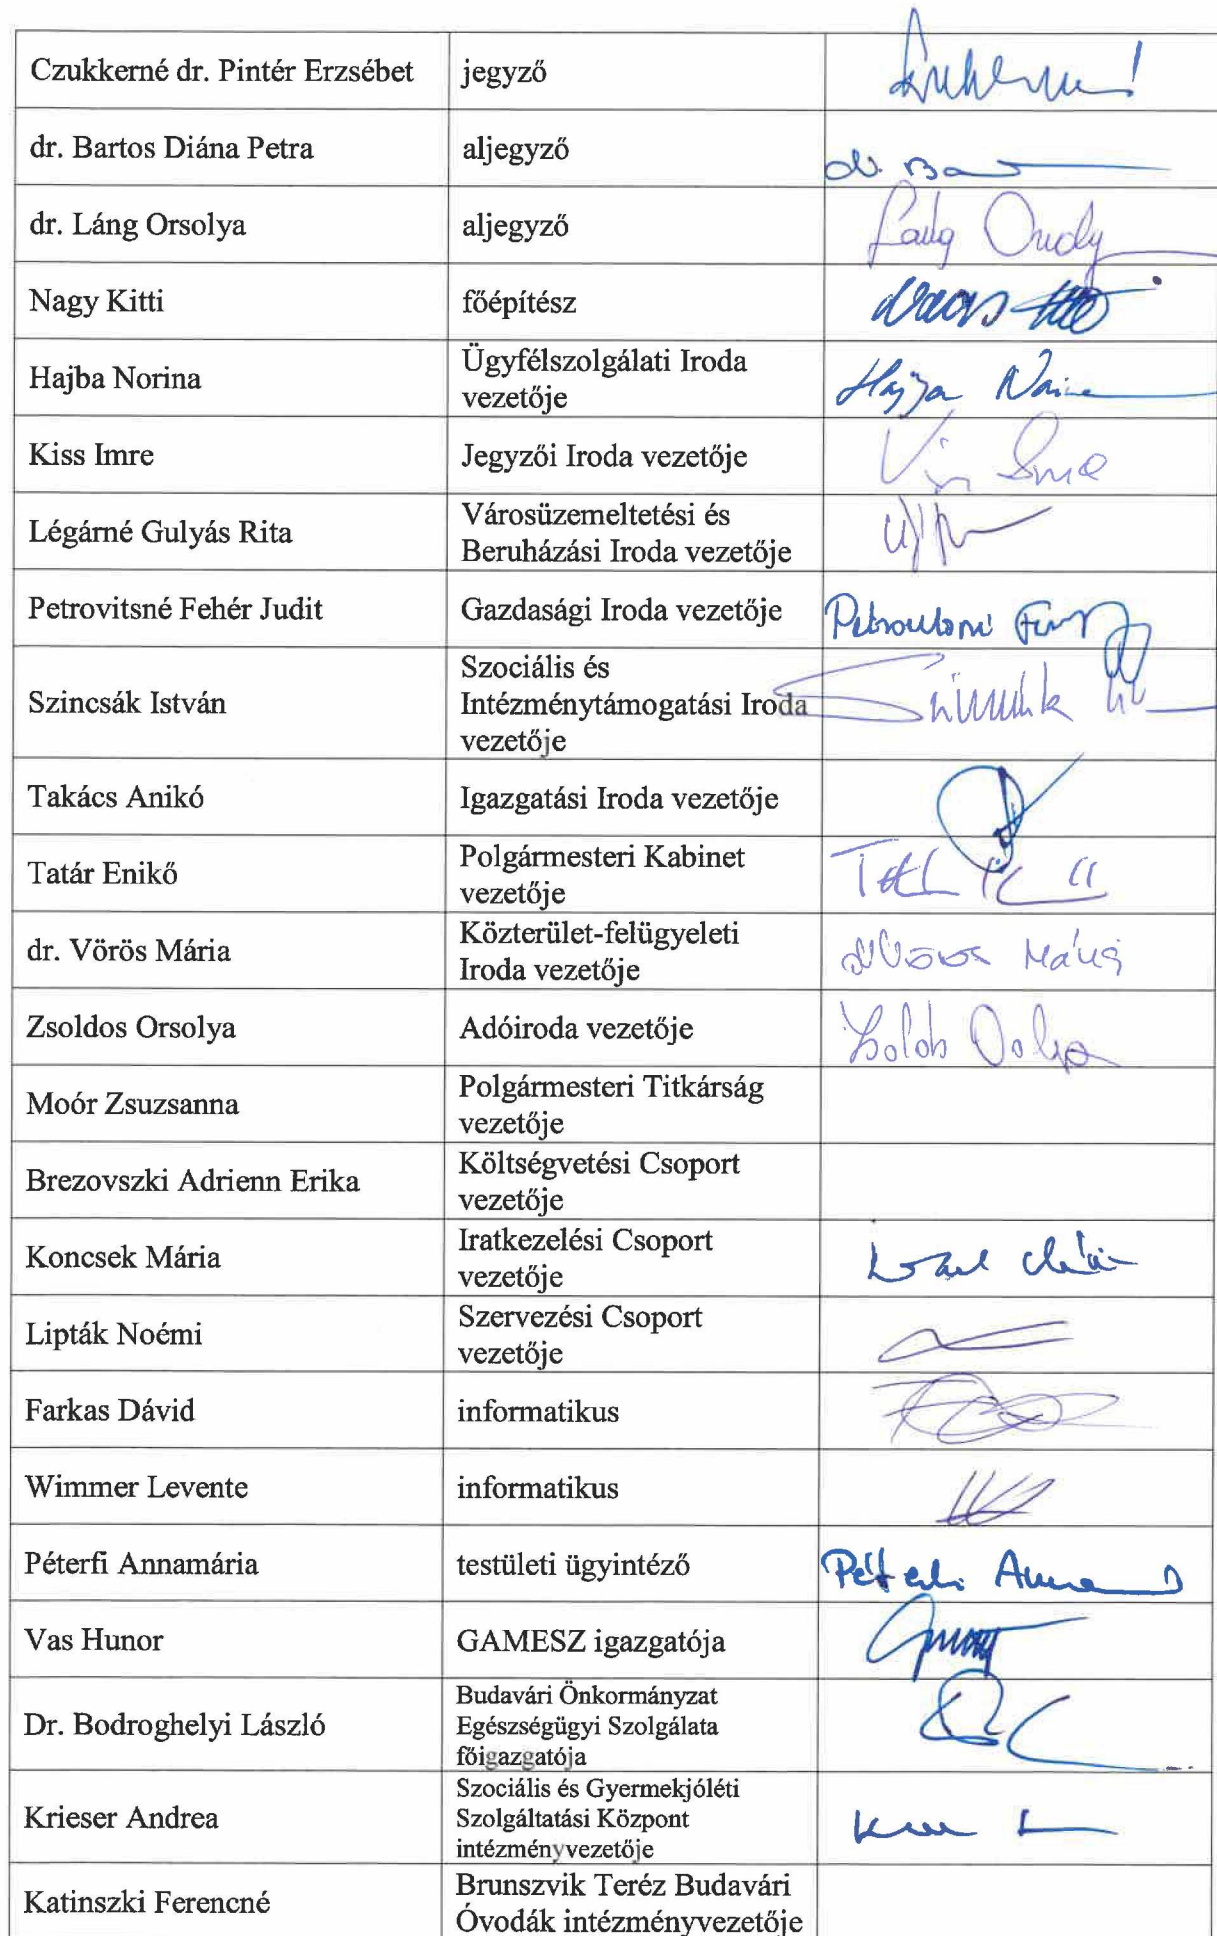 Czukkerné dr. Pintér Erzsébet
jegyző
dr. Bartos Diána Petra
aljegyző
dr. Láng Orsolya
aljegyző
Nagy Kitti
főépítész
Hajba Norina
Ügyfélszolgálati Iroda
vezetője
Kiss Imre
Jegyzői Iroda vezetője
Légárné Gulyás Rita
Városüzemeltetési és
Beruházási Iroda vezetője
Petrovitsné Fehér Judit
Gazdasági Iroda vezetője
Szincsák István
Szociális és
Intézménytámogatási Iroda
vezetője
Takács Anikó
Igazgatási Iroda vezetője
Tatár Enikő
Polgármesteri Kabinet
vezetője
dr. Vörös Mária
Közterület-felügyeleti
Iroda vezetője
Zsoldos Orsolya
Adóiroda vezetője
Moór Zsuzsanna
Polgármesteri Titkárság
vezetője
Brezovszki Adrienn Erika
Költségvetési Csoport
vezetője
Koncsek Mária
Iratkezelési Csoport
vezetője
Lipták Noémi
Szervezési Csoport
vezetője
Farkas Dávid
informatikus
Wimmer Levente
informatikus
Péterfi Annamária
testületi ügyintéző
Vas Hunor
GAMESZ igazgatója
Dr. Bodroghelyi László
Budavári Önkormányzat
Egészségügyi Szolgálata
főigazgatója
Krieser Andrea
Szociális és Gyermekjóléti
Szolgáltatási Központ
intézményvezetője
Katinszki Ferencné
Brunszvik Teréz Budavári
Óvodák intézményvezetője